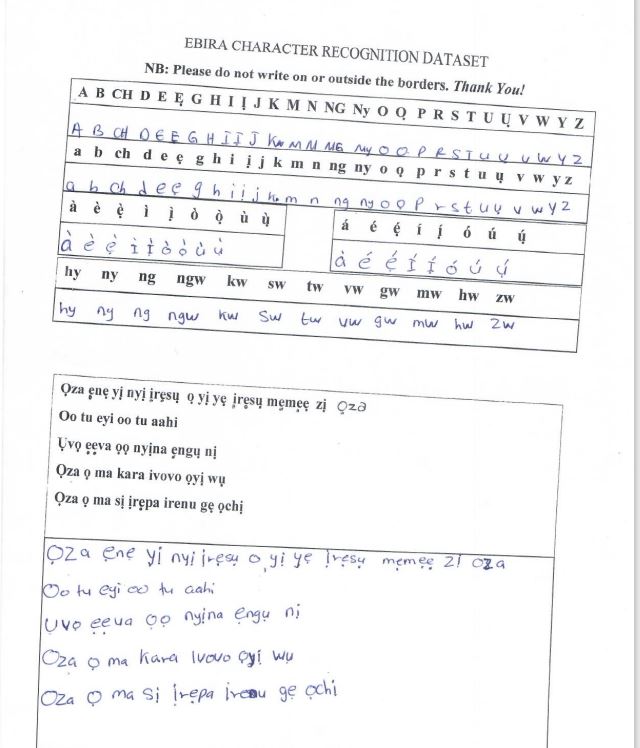 EBIRA CHARACTER RECOGNITION DATASET
NB: Please do not write on or outside the borders. Thank You!
A B CH D E Ẹ G H I Ị J K M N NG Ny O Ọ P R S T U Ụ V W Y Z
A B CH D E Ẹ G H I Ị J K M N NG Ny O Ọ P R S T U Ụ V W Y Z
a b ch d e ẹ g h i ị j k m n ng ny o ọ p r s t u ụ v w y z
a b ch d e ẹ g h i ị j k m n ng ny o ọ p r s t u ụ v w y z
à è ẹ̀ ì ị̀ ò ọ̀ ù ụ̀
à è ẹ̀ ì ị̀ ò ọ̀ ù ụ̀
á é ẹ́ í ị́ ó ú ụ́
à é ẹ́ í ị́ ó ú ụ́
hy ny ng ngw kw sw tw vw gw mw hw zw
hy ny ng ngw kw sw tw vw gw mw hw zw
Ọza ẹnẹ yị nyị ịrẹsụ ọ yị yẹ ịrẹsụ mẹmẹẹ zị ọza
Oo tu eyi oo tu aahi
Ụvọ ẹẹva ọọ nyịna ẹngụ nị
Ọza ọ ma kara ivovo ọyị wụ
Ọza ọ ma sị ịrẹpa irenu gẹ ọchị
Ọza ẹnẹ yị nyị ịrẹsụ ọ yị yẹ ịrẹsụ mẹmẹẹ zị ọza
Oo tu eyi oo tu aahi
Ụvọ ẹẹva ọọ nyịna ẹngụ nị
Ọza ọ ma kara ivovo ọyị wụ
Ọza ọ ma sị ịrẹpa irenu gẹ ọchị